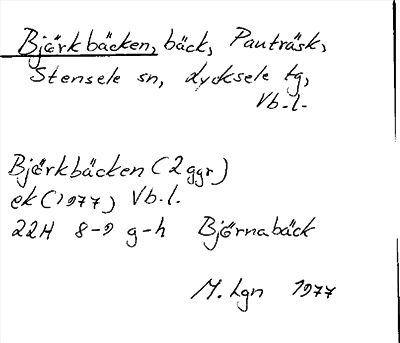 Björkbäcken, bäck, Pauträsk,
Stensele sn, Lycksele tg,
Vb.l.
Björkbäcken (2 ggr)
ek (1977) Vb.l.
22H 8-9 g-h Björnabäck
M. Lgn 1977